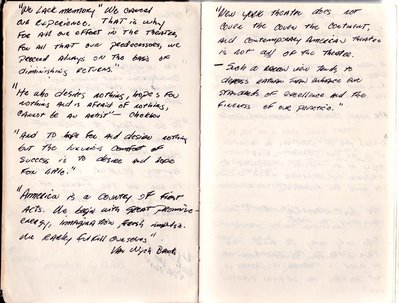 "We Lack memory" We cannot
our experience. THAT is why
FOR ALL our effort IN the theatre,
FOR ALL THAT our predecessors, we
proceed always on the basis of
diminishing returns."
"He who desires nothing, hopes for
nothing and is afraid of nothing,
cannot be an artist" - Chekhov
"And to hope for and desire nothing
but the luxurious comfort of
success is to desire and hope
for little."
"America is a country of first
Acts. We begin with great promise-
energy, imagination fresh impulse.
We rarely fulfill ourselves"
Van Wyck Brooks
"New York theatre does not
cover the cover the continent,
and contemporary American theatre
is not all of the theatre.
- Such a narrow view tends to
depress rather than enhance our
standards of excellence and the
fineness of our practice."